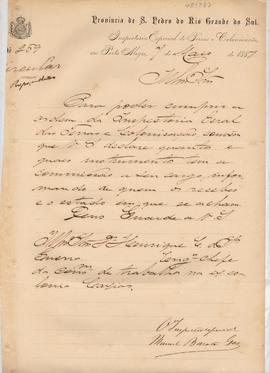 Provincia de S. Pedro do Rio Grande do Sul.
Inspectoria Especial de Terras e Colonisação,
em Porto Alegre, 7 de Maio de 1887
Nº 257
Circular
Illmo Snr
Para poder cumprir a
ordem da Inspectoria Geral
das Terras e Colonisação,
que V. S. declare quantos e
quaes instrumentos tem a
commissão a seu cargo,
mandando de quem os recebeo
e o estado em que se acham
Deus Guarde a V. S.
Illmo Snr Dr Henrique
Guerra Engº Chefe
da Comm de trabalho na ex co
lonia Caxias
O Inspector
Manuel